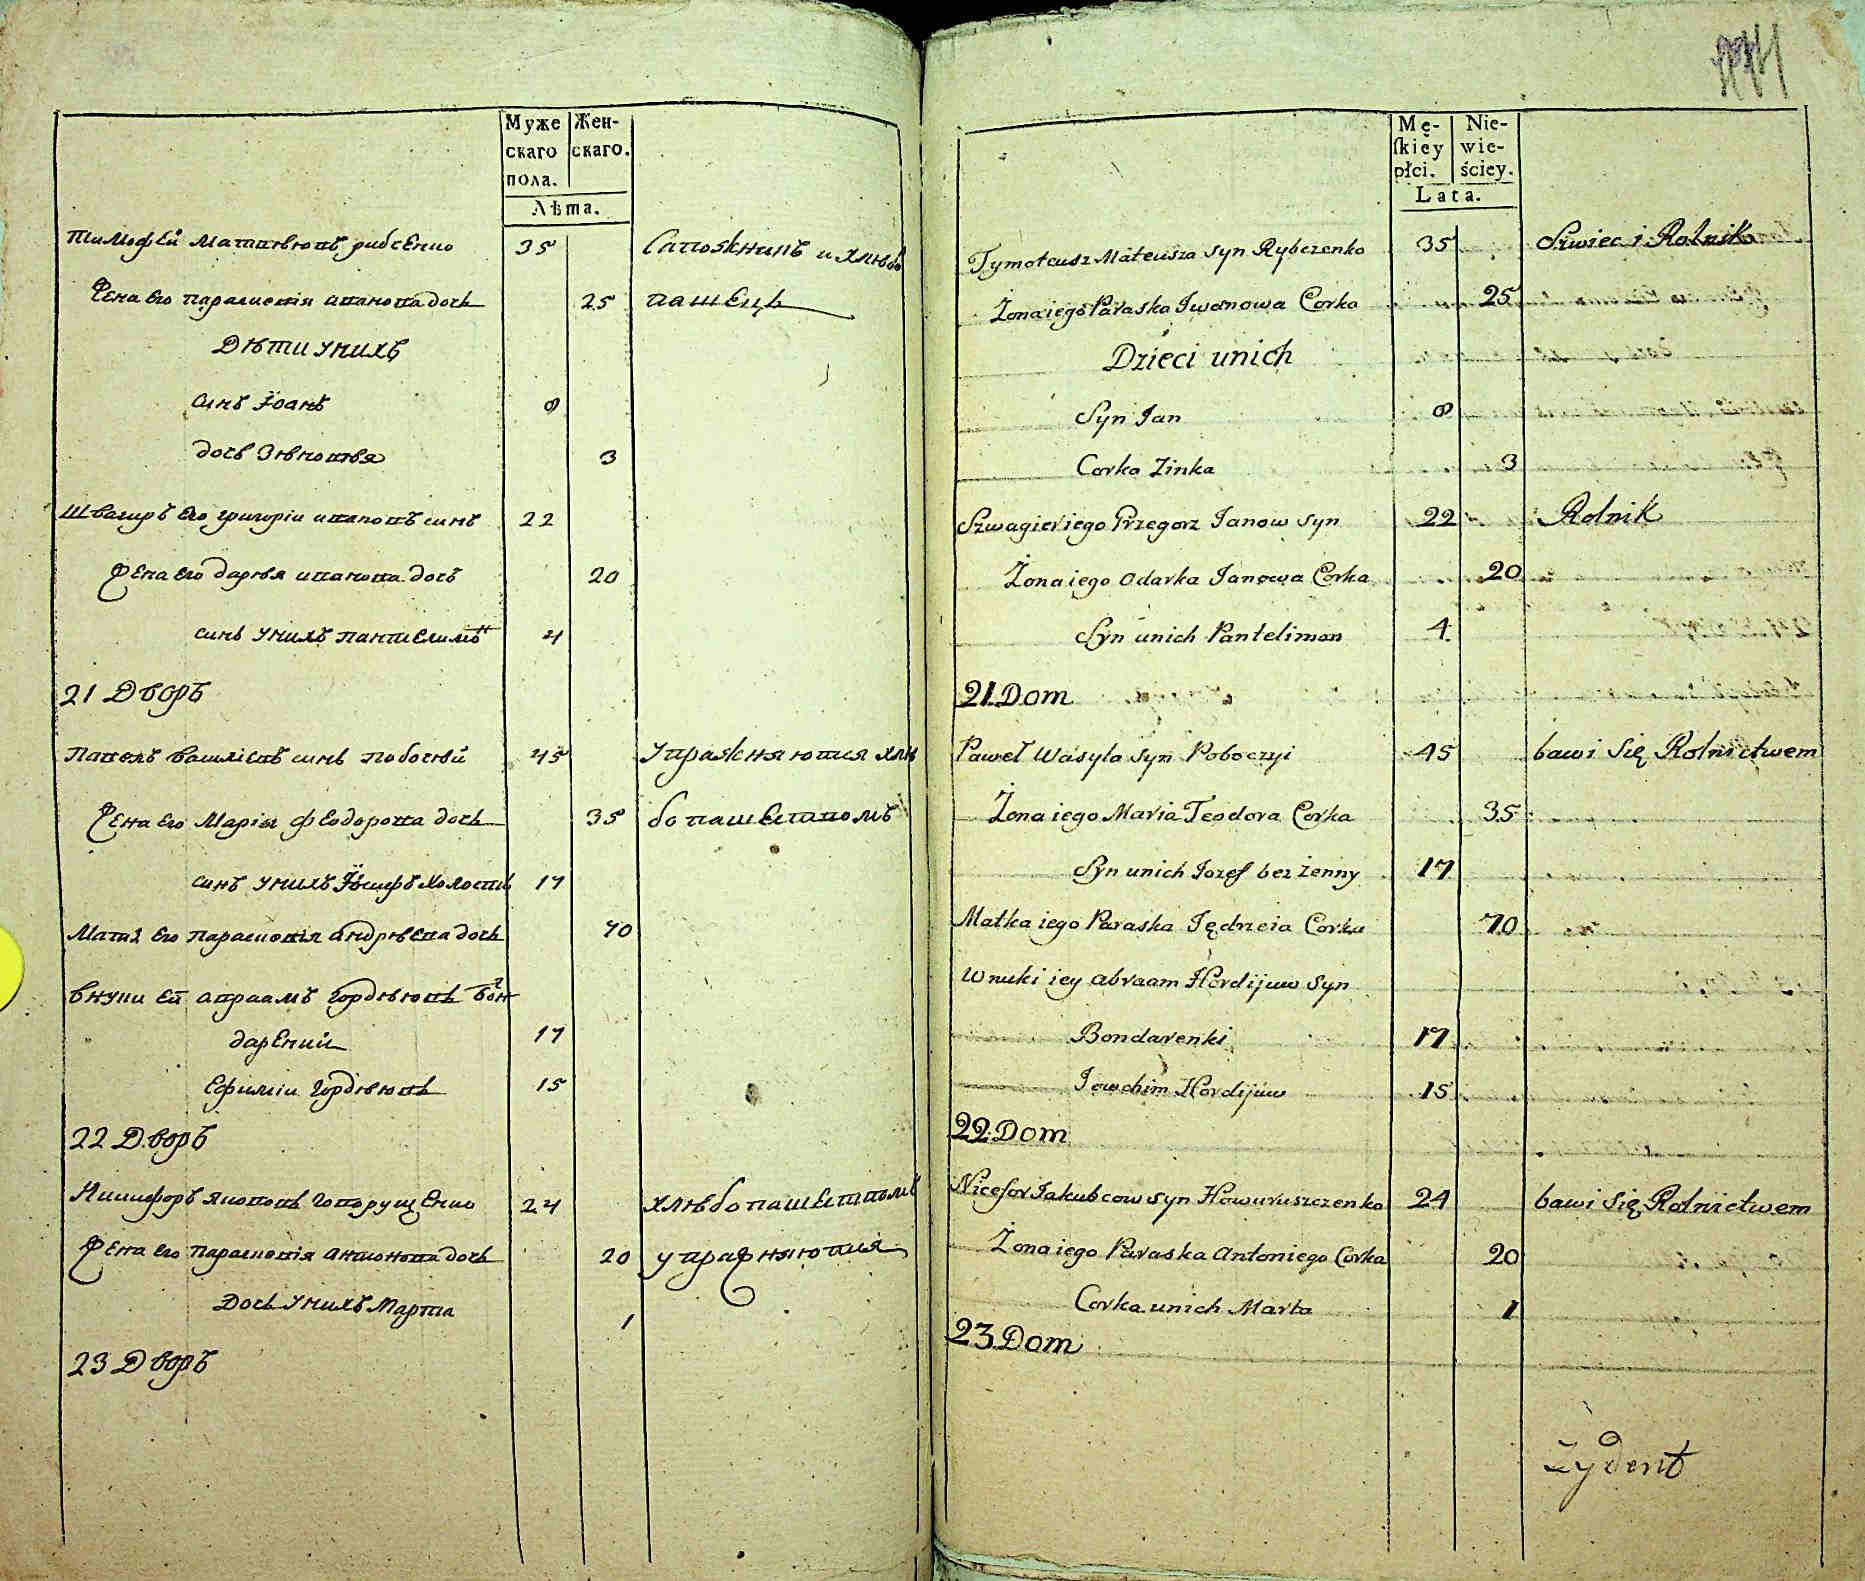 Муже скаго пола.
Жен- скаго.
Лѣта.
Тимофей Матвѣювъ рибченко 35 Сапожникъ и хлѣбо
Жена его параскевія иванова дочь 25 пашецъ
Дѣти унихъ
синъ Іоанъ 8
дочь Зѣновѣя 3
Швагиръ его григорій ивановъ синъ 22
Жена его дарѣя иванова дочь 20
синъ унихъ пантелимонъ 4
21 Дворъ
Павелъ василіевъ синъ побочѣй 45 упражняются хлѣ
Жена его Марія феодорова дочь 35 бопашествомъ
синъ унихъ Іосифъ холостій 17
Мати его параскевія андрѣева дочь 70
внуки ей авраамъ гордѣювъ бон
даренки 17
Ефимій гордѣювъ 15
22 Дворъ
Никифоръ якововъ говорущенко 24 хлѣбопашествомъ
Жена его параскевія антонова дочь 20 упражняются
Дочь унихъ Марта 1
23 Дворъ
Mę- skiey płci.
Nie- wie- ściey.
Lata.
Tymoteusz Mateusza syn Rybczenko 35 Szwiec i Rolnik
Żona iego Paraska Iwanowa Corka 25
Dzieci unich
Syn Jan 8
Corka Zinka 3
Szwagier iego Przegorz Janow syn 22 Rolnik
Żona iego Odarka Janowa Corka 20
Syn unich Pantelimon 4.
21 Dom
Paweł Wasyla syn Poboczyi 45 bawi się Rolnictwem
Żona iego Maria Teodora Corka 35
Syn unich Jozef bez żenny 17
Matka iego Paraska Jędrzeia Corka 70
Wnuki iey Abraam Hordijuw Syn
Bondarenki 17
Jowchim Hordijuw 15
22 Dom
Nicefor Jakubcow syn Howuruszczenko 24 bawi się Rolnictwem
Żona iego Paraska Antoniego Corka 20
Corka unich Marta 1
23 Dom